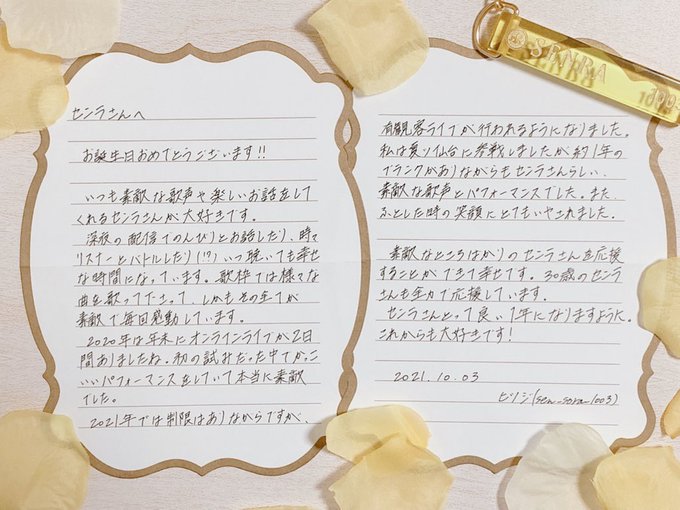 センラさんへ
お誕生日おめでとうございます!!
いつも素敵な歌声や楽しいお話をして
くれるセンラさんが大好きです。
深夜の配信でのんびりとお話したり、時々
リスナーとバトルしたり(!?)いつ聴いても幸せ
な時間になっています。歌枠では様々な
曲を歌って下さって、しかもその全てが
素敵で毎回感動しています。
2020年は年末にオンラインライブが2日
間ありましたね。初の試みだった中でかっこ
いいパフォーマンスをしていて本当に素敵
でした。
2021年では制限はありながらですが、
有観客ライブが行われるようになりました。
私は裏ソ仙台に参戦しましたが約1年の
ブランクがありながらもセンラさんらしい、
素敵な歌声とパフォーマンスでした。また、
ふとした時の笑顔にとてもいやされました。
素敵なところばかりのセンラさんを応援
することができて幸せです。30歳のセンラ
さんも全力で応援しています。
センラさんとって良い1年になりますように。
これからも大好きです!
2021.10.03
ヒツジ(sen_sora_1003)
SENRA